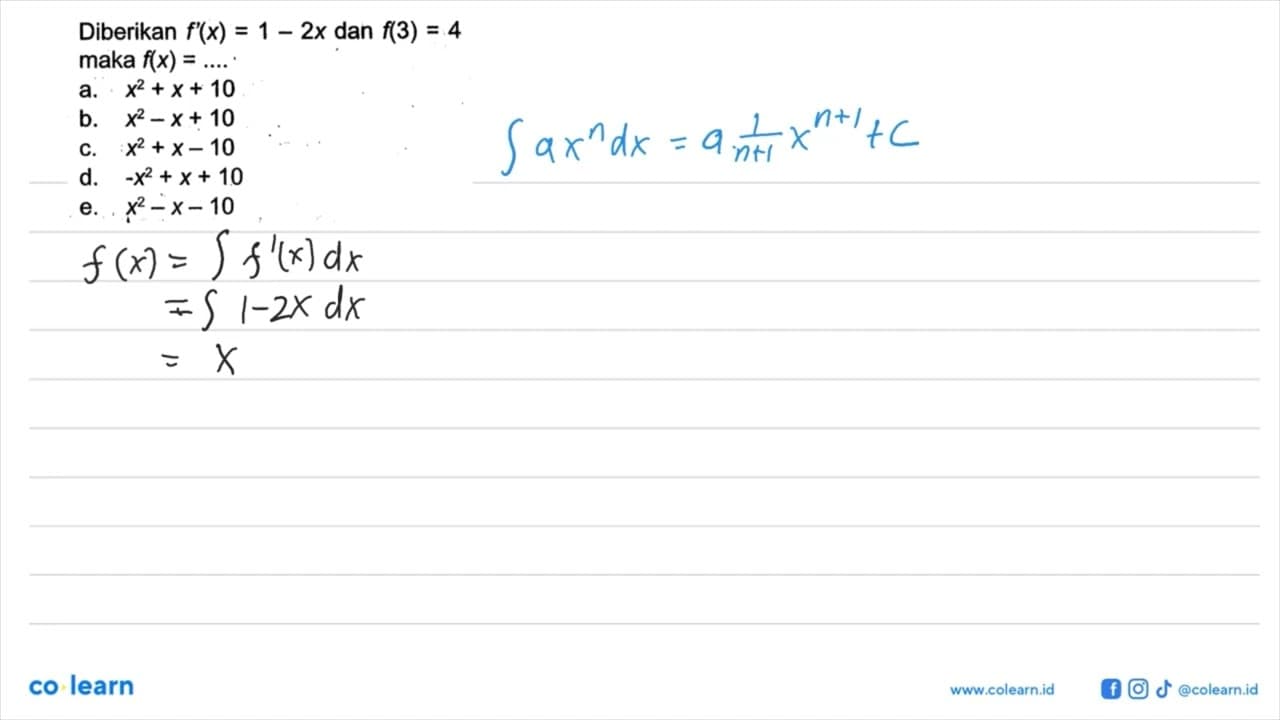 Diberikan f'(x) = 1 – 2x dan f(3) = 4
maka f(x) = ....
a. x² + x + 10
b. x² – x + 10
c. x² + x – 10
d. -x² + x + 10
e. x² – x – 10
∫ ax^n dx = a 1/(n+1) x^(n+1) + C
f(x) = ∫ f'(x) dx
= ∫ 1-2x dx
= x
co learn
www.colearn.id
@colearn.id